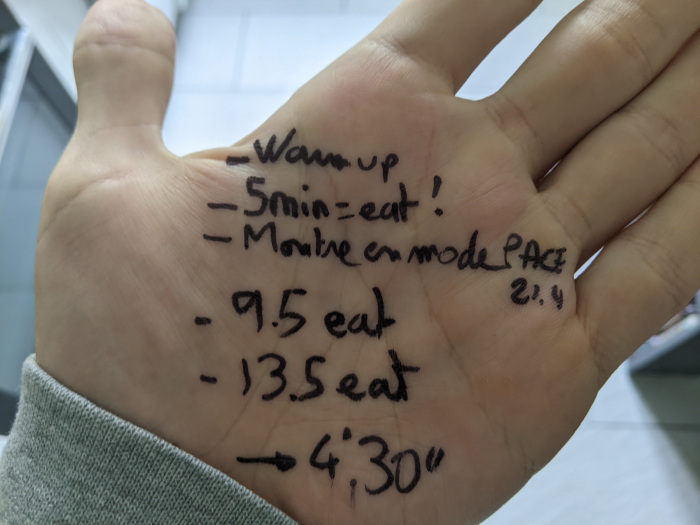 - Warm up
- 5min = eat !
- Montre en mode PACE
21.4
- 9.5 eat
- 13.5 eat
→ 4'30"